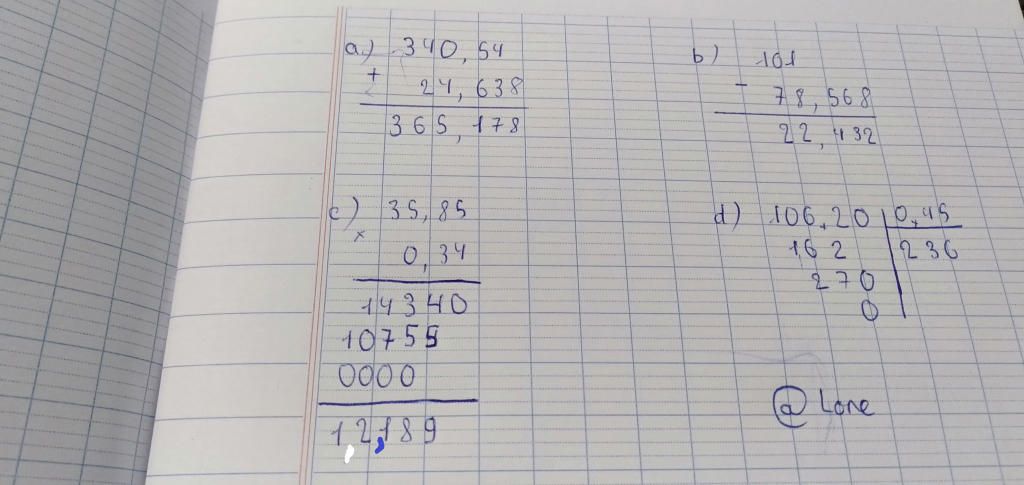 a.) 340,54
+ 24,638
365,178
b) 101
- 78,568
22,432
c) 35,85
× 0,34
14340
10755
0000
12,189
d) 106,20 0,45
162 236
270
0
@ Lone